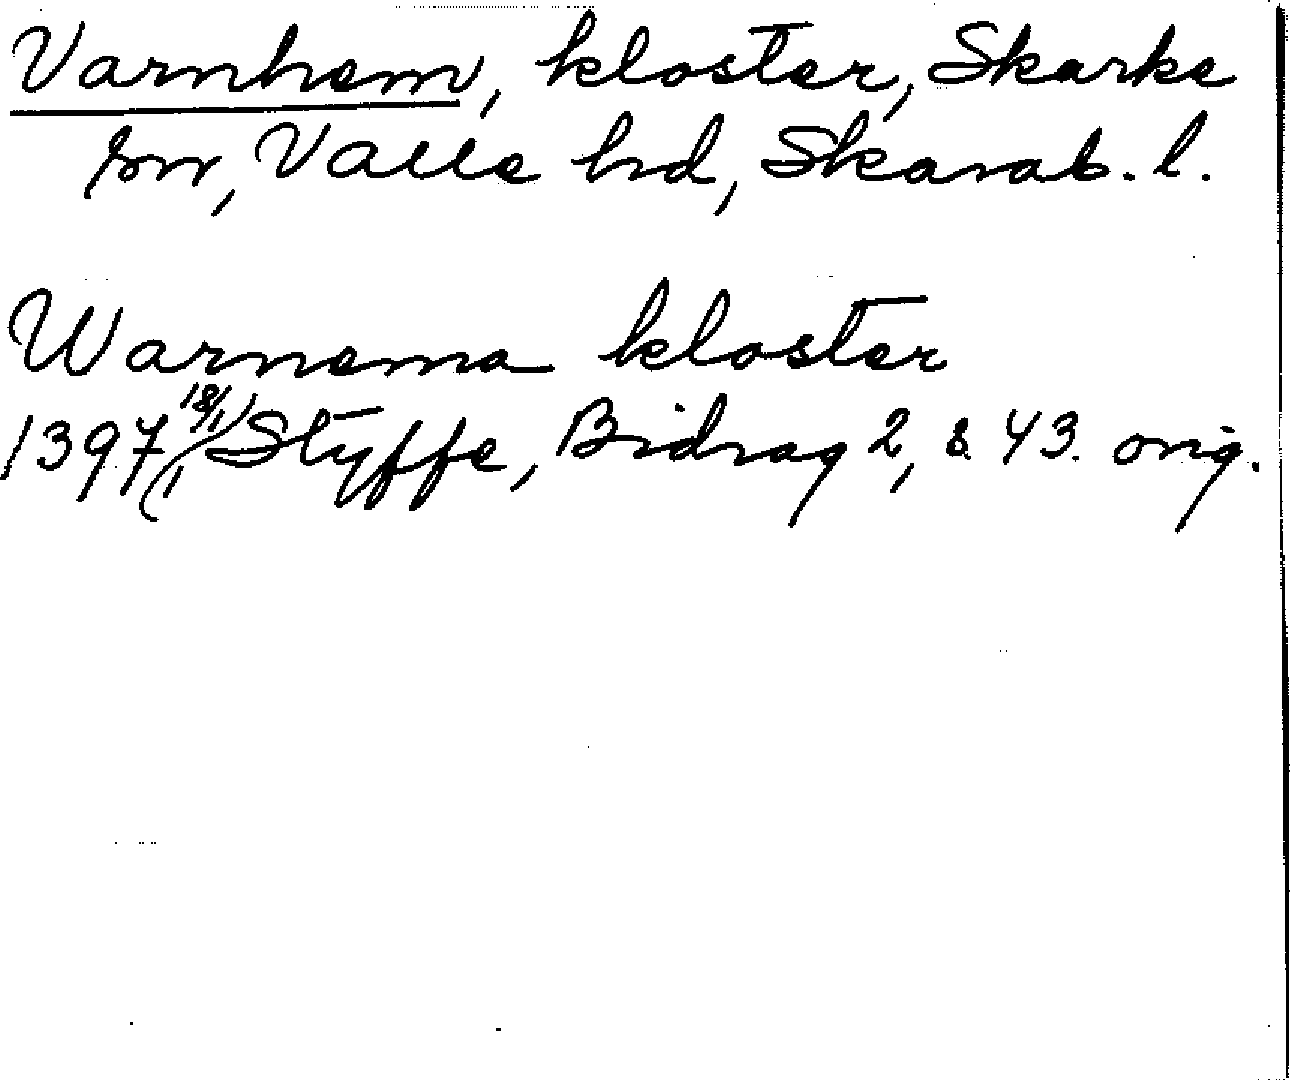 Varnhem, kloster, Skarke
sn, Valle hd, Skarab. l.
Warnema kloster
1397 18/1, Styffe, Bidrag 2, s. 43. orig.